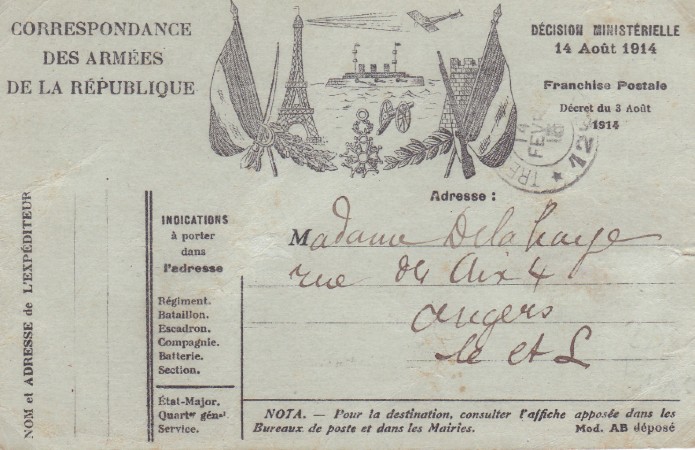 CORRESPONDANCE
DES ARMÉES
DE LA RÉPUBLIQUE
DÉCISION MINISTÉRIELLE
14 Août 1914
Franchise Postale
Décret du 3 Août
1914
14
FEVR
16
TRE
12
NOM et ADRESSE de L'EXPÉDITEUR
INDICATIONS
à porter
dans
l'adresse
Régiment.
Bataillon.
Escadron.
Compagnie.
Batterie.
Section.
État-Major.
Quartier génal.
Service.
Adresse :
Madame Delahaye
rue d'Aix 4
Angers
M et L
NOTA. — Pour la destination, consulter l'affiche apposée dans les
Bureaux de poste et dans les Mairies. Mod. AB déposé